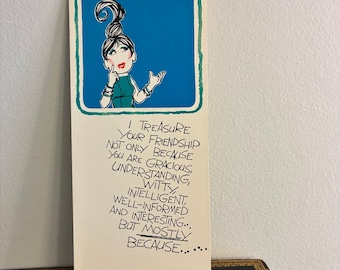 I TREASURE
YOUR FRIENDSHIP
NOT ONLY BECAUSE
YOU ARE GRACIOUS,
UNDERSTANDING,
WITTY,
INTELLIGENT,
WELL-INFORMED
AND INTERESTING...
BUT MOSTLY
BECAUSE.....